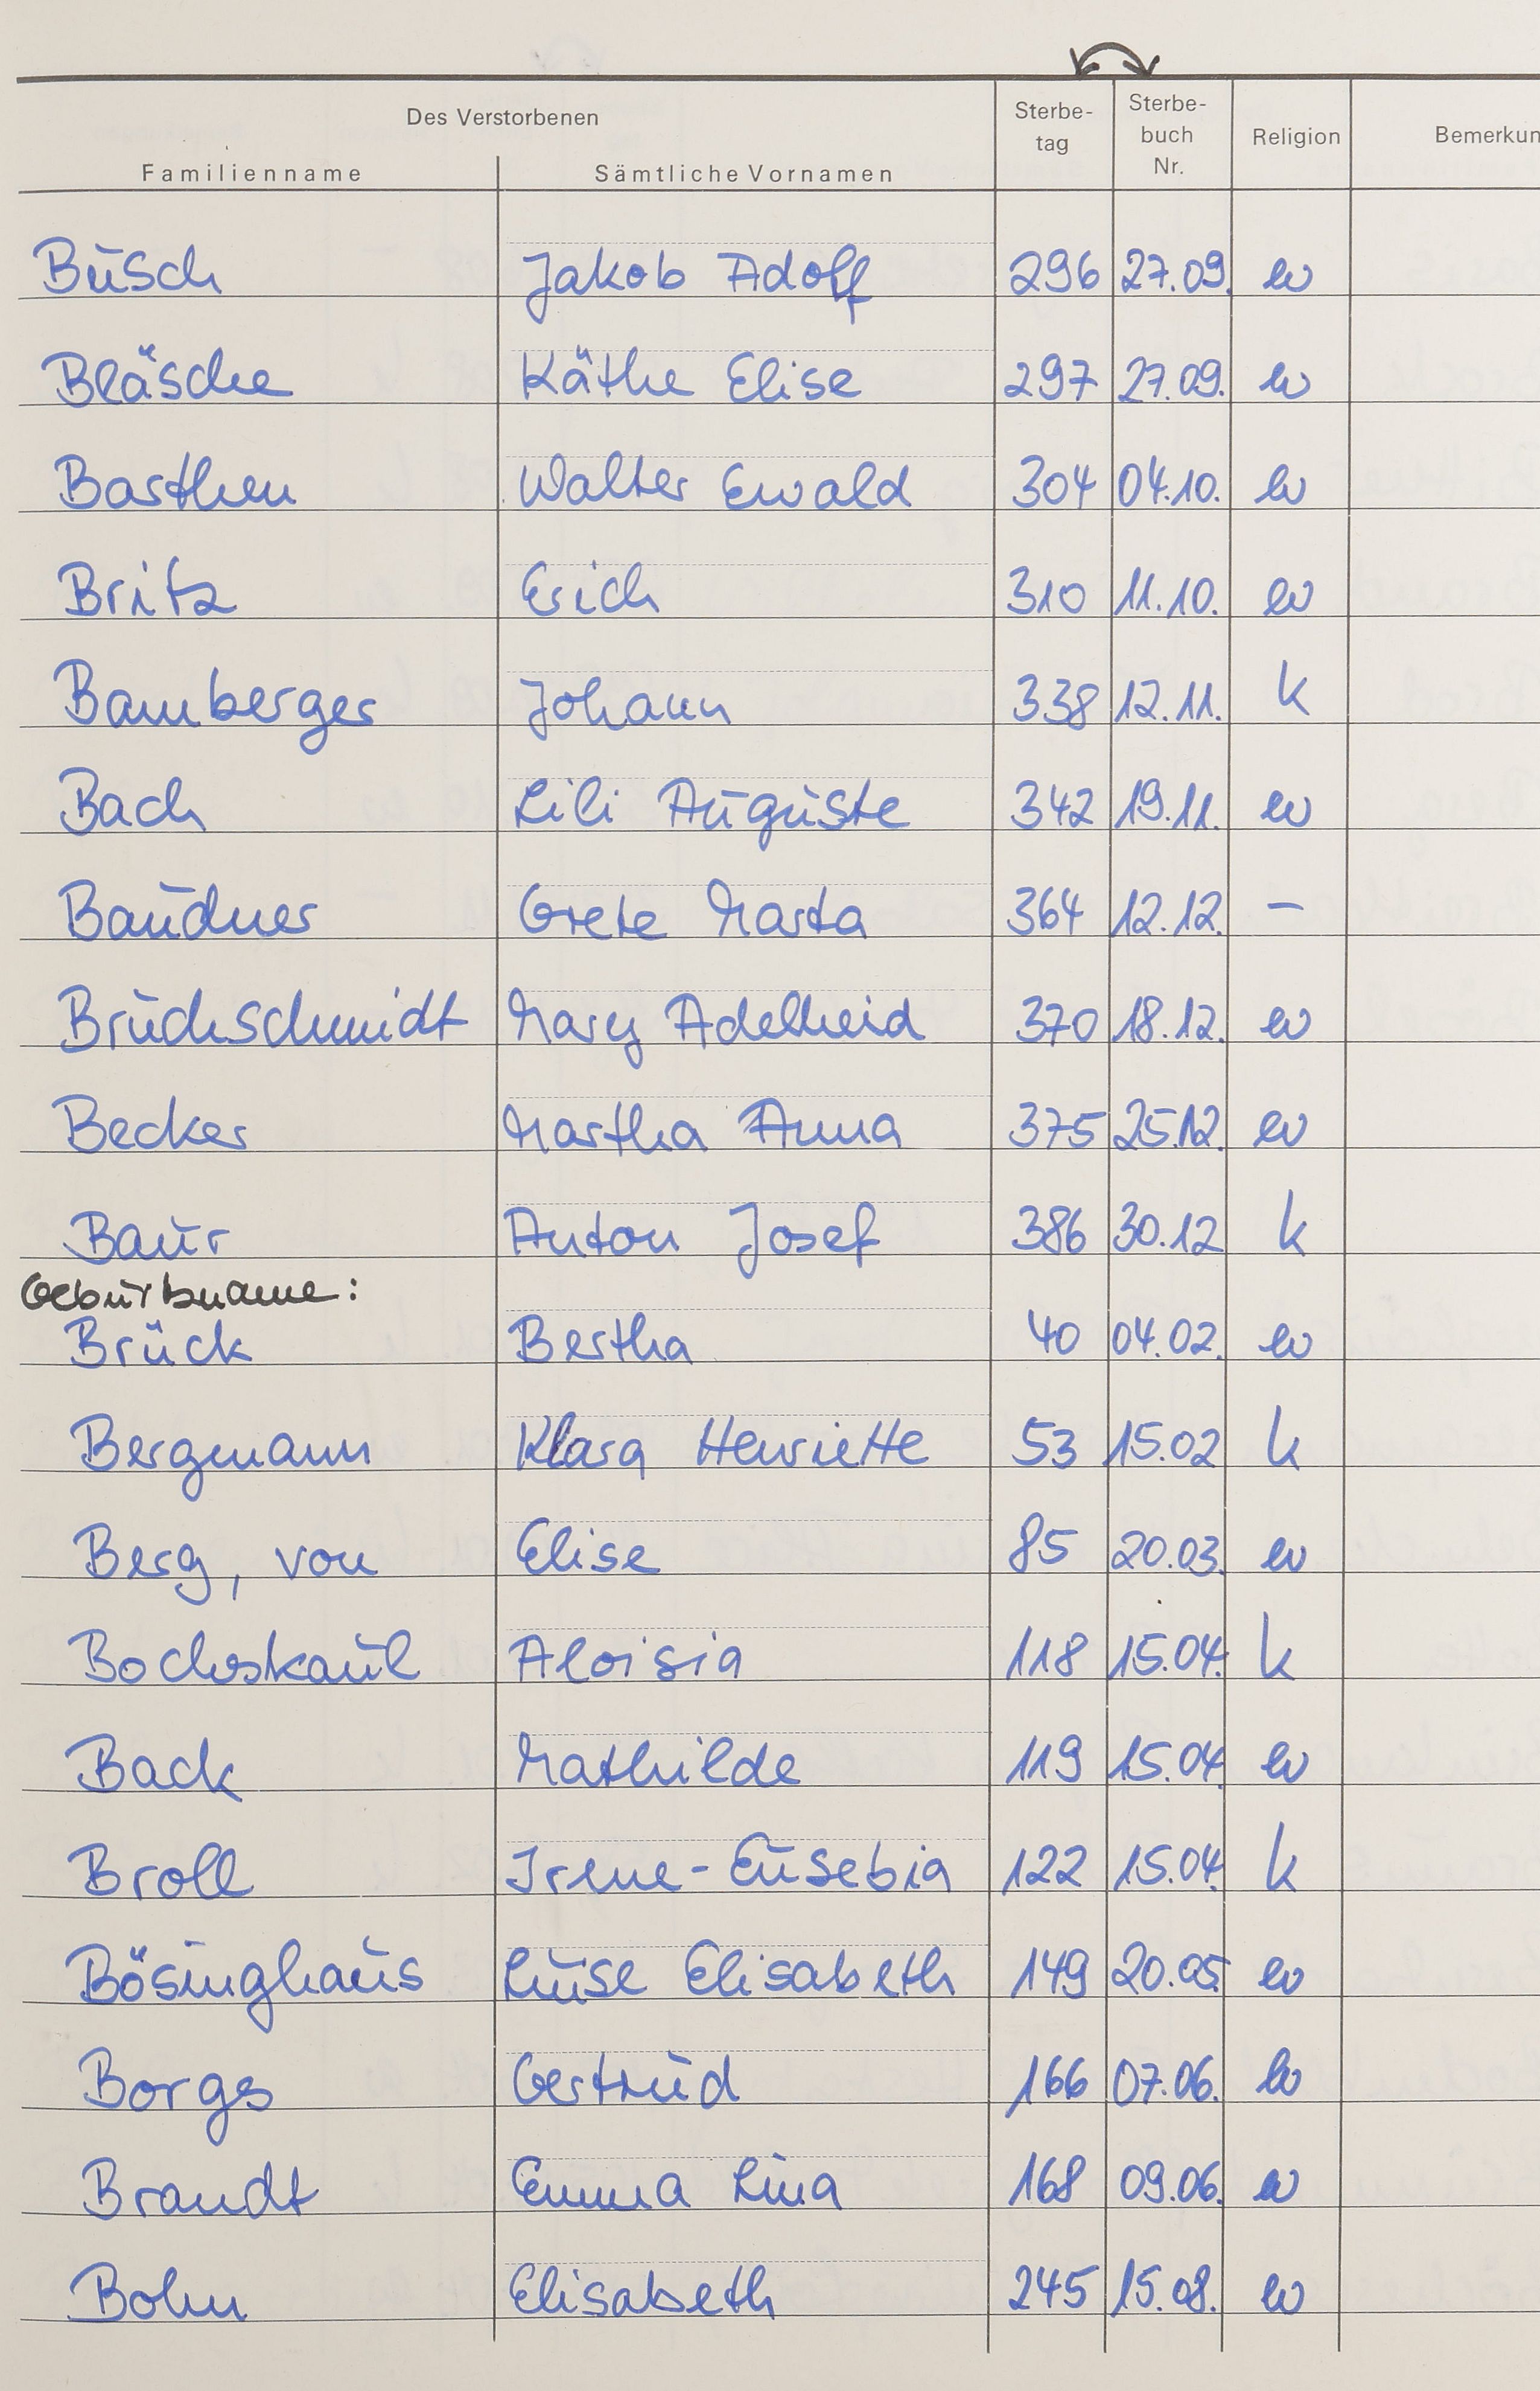 Des Verstorbenen
Familienname Sämtliche Vornamen Sterbe-tag Sterbe-buch Nr. Religion Bemerkun
Busch Jakob Adolf 296 27.09. ev
Bläsche Käthe Elise 297 27.09. ev
Barthen Walter Ewald 304 04.10. ev
Britz Erich 310 11.10. ev
Bamberger Johann 338 12.11. k
Bach Lili Auguste 342 19.11. ev
Baudner Grete Marta 364 12.12. –
Bruchschmidt Mary Adelheid 370 18.12. ev
Becker Martha Anna 375 25.12. ev
Baur Anton Josef 386 30.12 k
Geburtsname:
Brück Bertha 40 04.02. ev
Bergmann Klara Henriette 53 15.02 k
Berg, von Elise 85 20.03. ev
Bochskaul Aloisia 118 15.04. k
Back Mathilde 119 15.04. ev
Broll Irene-Eusebia 122 15.04. k
Bösinghaus Luise Elisabeth 149 20.05 ev
Borgs Gertrud 166 07.06. ev
Brandt Emma Lina 168 09.06. ev
Bohn Elisabeth 245 15.08. ev